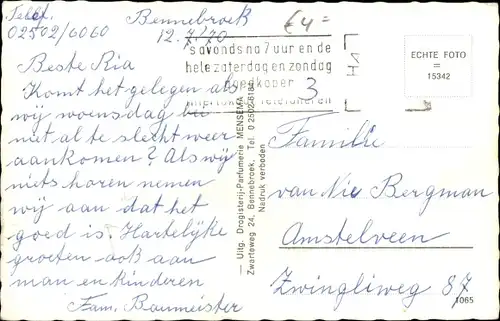 Telef.
02502/6060
Bennebroek
12.7/70
Beste Ria
Komt het gelegen als
wij woensdag bij
niet al te slecht weer
aankomen? Als wij
niets horen nemen
wij aan dat het
goed is. Hartelijke
groeten ook aan
man en kinderen
Fam. Baumeister
€4=
's avonds na 7 uur en de
hele zaterdag en zondag
goedkoper
interlokaal telefoneren
3
H1
ECHTE FOTO
=
15342
— Uitg. Drogisterij-Parfumerie MENSEMA
Zwarteweg 24, Bennebroek, Tel. 0 2502-6184
Nadruk verboden
Familie
van Nie Bergman
Amstelveen
Zwingliweg 87
1065